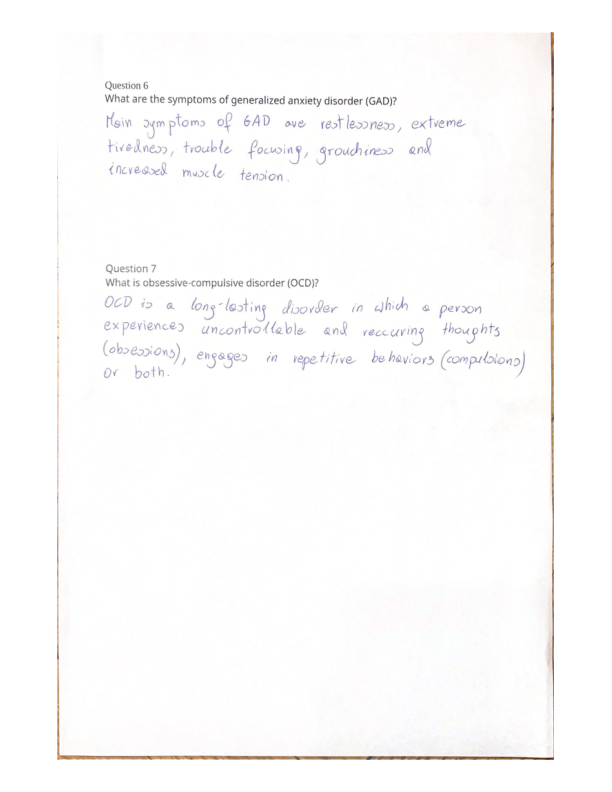 Question 6
What are the symptoms of generalized anxiety disorder (GAD)?
Main symptoms of GAD are restlessness, extreme
tiredness, trouble focusing, grouchiness and
increased muscle tension.
Question 7
What is obsessive-compulsive disorder (OCD)?
OCD is a long-lasting disorder in which a person
experiences uncontrollable and reccuring thoughts
(obsessions), engages in repetitive behaviors (compulsions)
or both.